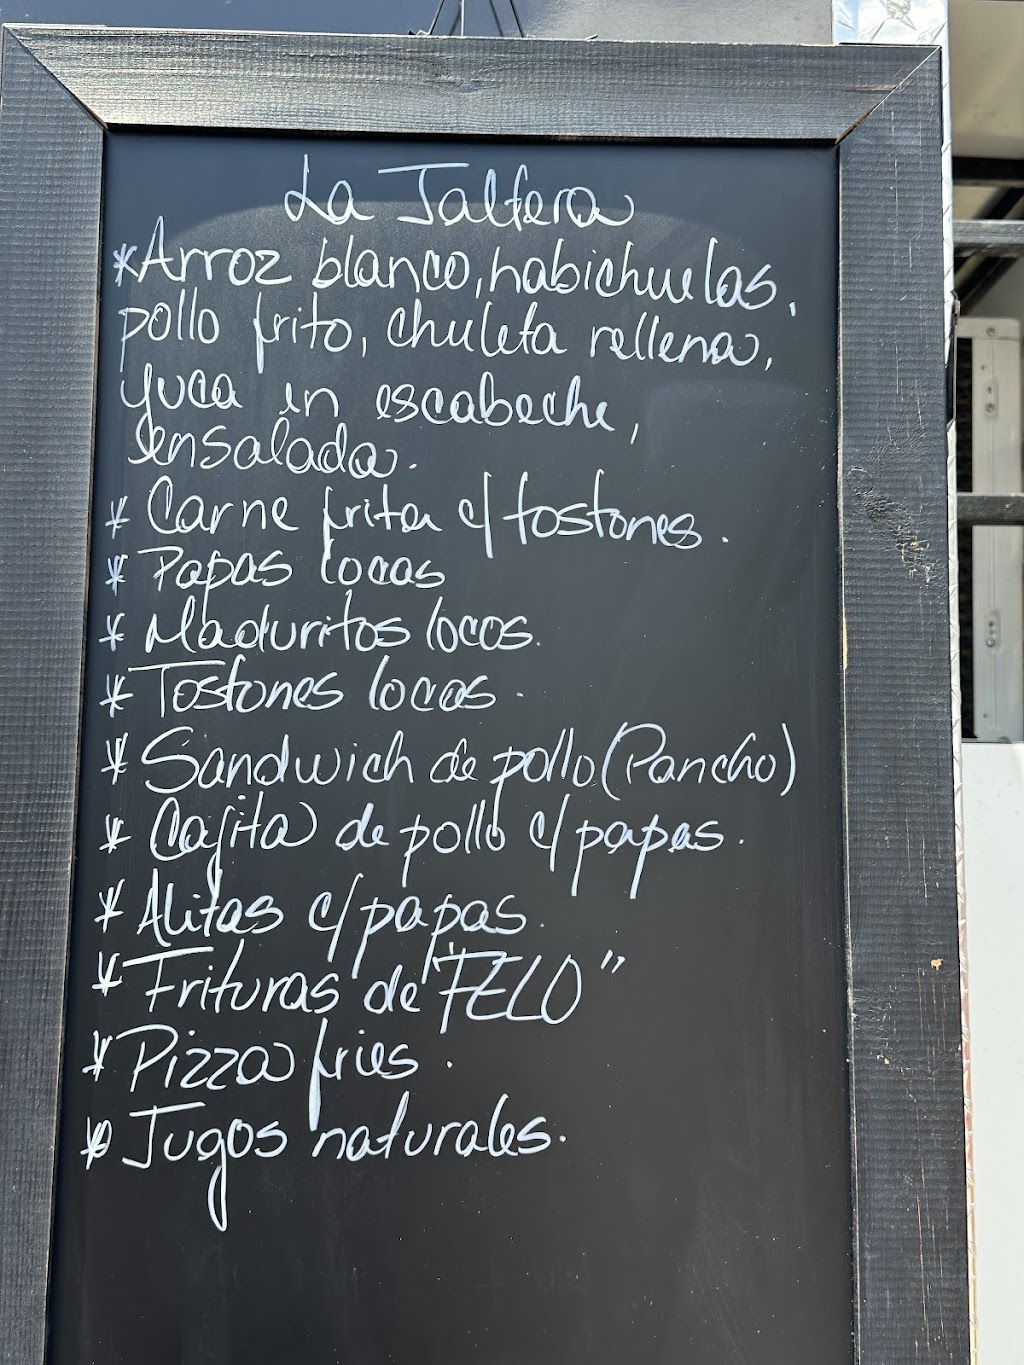 La Jaltera
*Arroz blanco, habichuelas,
pollo frito, chuleta rellena,
yuca en escabeche,
ensalada.
* Carne frita c/ tostones.
* Papas locas
* Maduritos locos.
* Tostones locos.
* Sandwich de pollo (Pancho)
* Cajita de pollo c/ papas.
* Alitas c/ papas.
* Frituras de "FELO"
* Pizza fries.
* Jugos naturales.